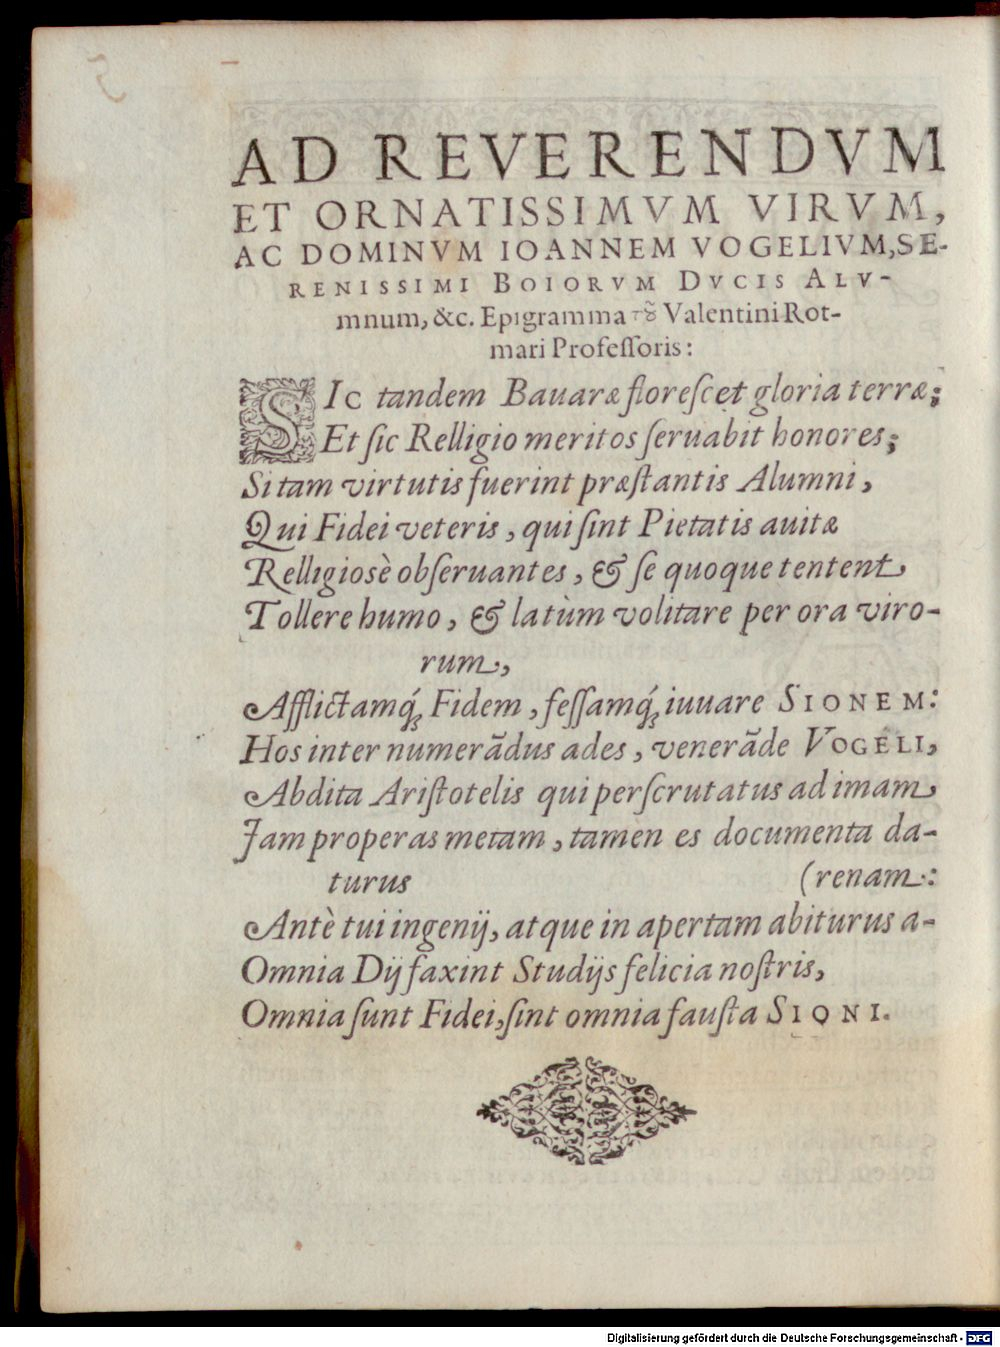 5
AD REVERENDVM
ET ORNATISSIMVM VIRVM,
AC DOMINVM IOANNEM VOGELIVM, SE-
RENISSIMI BOIORVM DVCIS ALV-
mnum, &c. Epigramma τȣ͂ Valentini Rot-
mari Profeſſoris:
SIC tandem Bauaræ floreſcet gloria terræ;
Et ſic Relligio meritos ſeruabit honores;
Si tam virtutis fuerint præſtantis Alumni,
Qui Fidei veteris, qui ſint Pietatis auitæ
Relligiosè obſeruantes, & ſe quoque tentent
Tollere humo, & latùm volitare per ora viro-
rum,
Afflictamq́ꝫ Fidem, feſſamq́ꝫ iuuare SIONEM:
Hos inter numerādus ades, venerāde VOGELI,
Abdita Ariſtotelis qui perſcrutatus ad imam
Jam properas metam, tamen es documenta da-
turus (renam:
Antè tui ingenij, atque in apertam abiturus a-
Omnia Dij faxint Studijs felicia noſtris,
Omnia ſunt Fidei, ſint omnia fauſta SIONI.
Digitalisierung gefördert durch die Deutsche Forschungsgemeinschaft - DFG